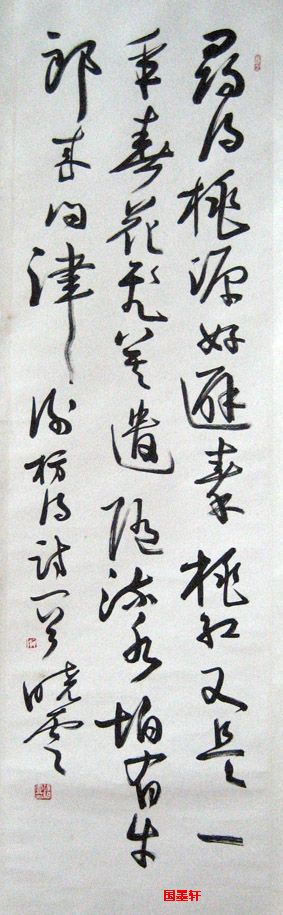 尋得桃源好避秦桃紅又是一
年春花飛莫遣隨流水怕有牛
郎来问津
謝枋得詩一首
曉雲
国墨轩